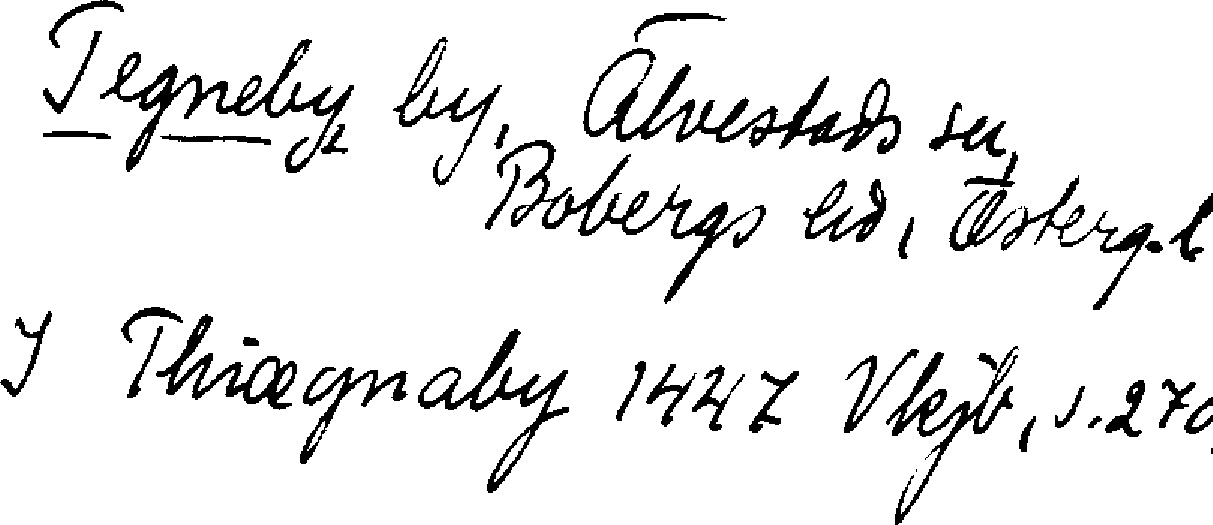 Tegneby by, Älvestads sn,
Bobergs hd, Österg. l
I Thiægnaby 1447 Vkjb, s. 270